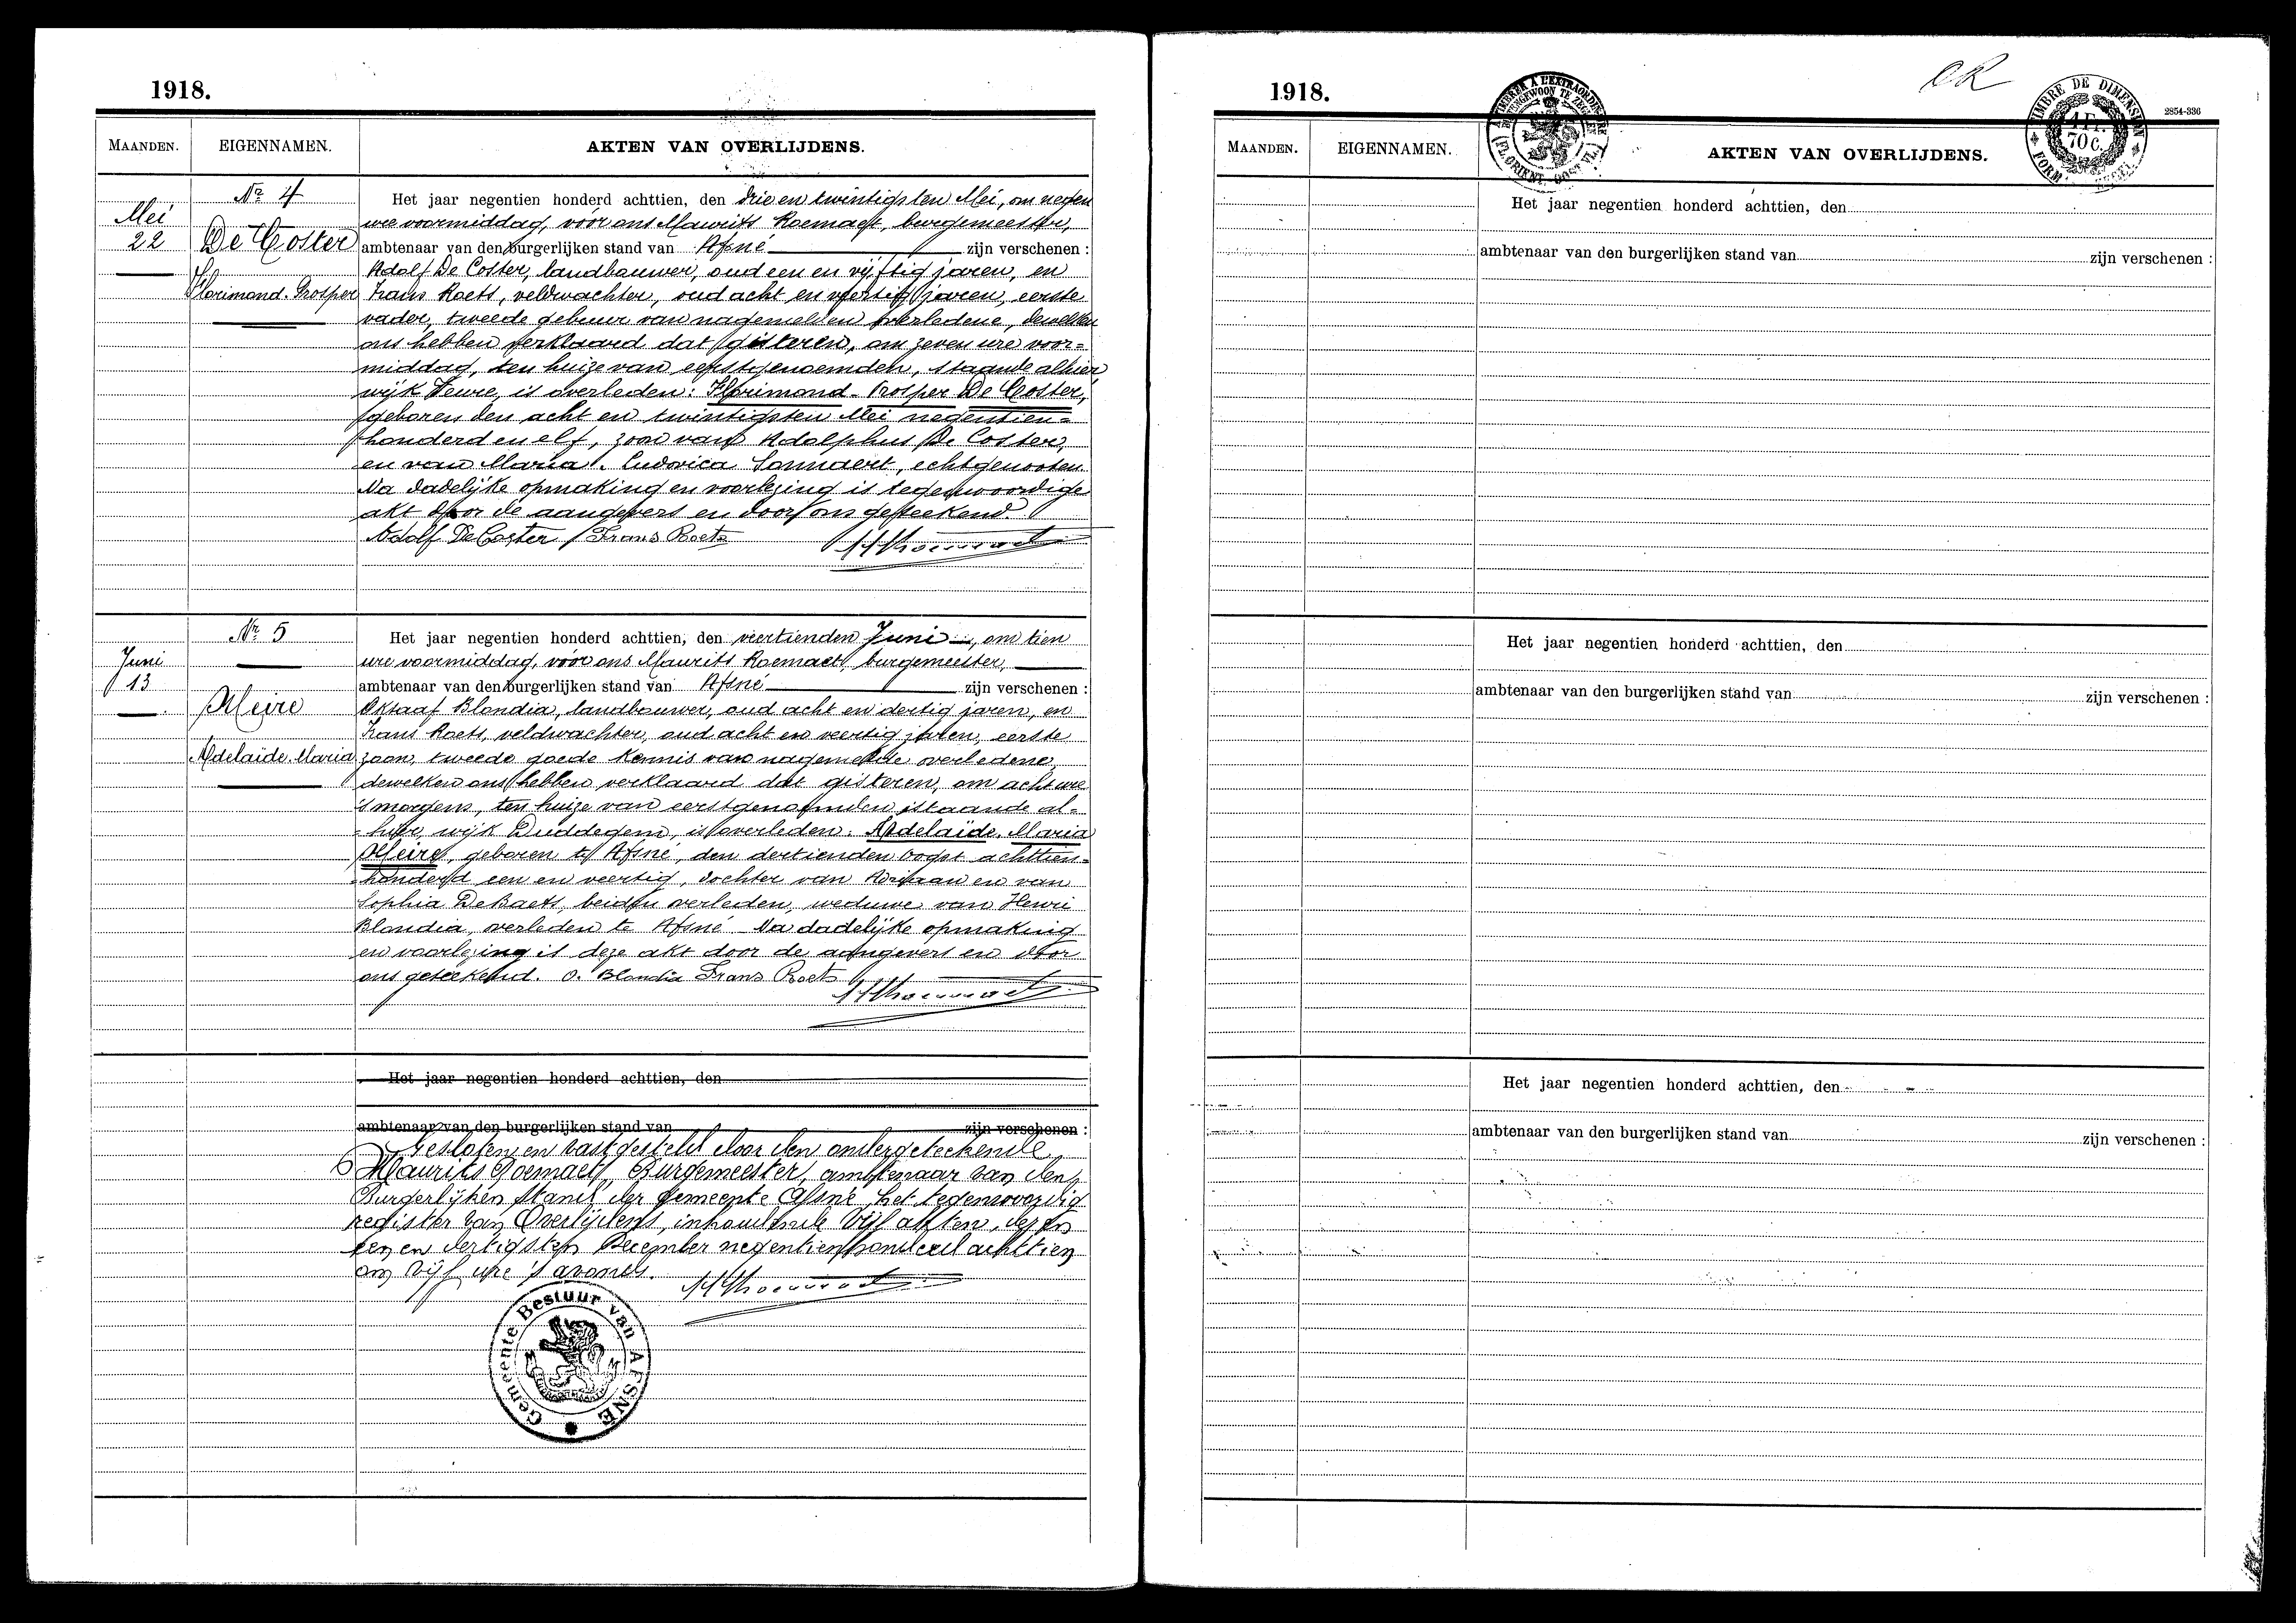 1918.
MAANDEN.
EIGENNAMEN.
AKTEN VAN OVERLIJDENS.
Mei
22
Nr. 4
De Coster
Florimond-Prosper
Het jaar negentien honderd achttien, den drie en twintigsten Mei, om negen
ure voormiddag, vóór ons Maurits Roemaet, burgemeester,
ambtenaar van den burgerlijken stand van Afsné zijn verschenen :
Adolf De Coster, landbouwer, oud een en vijftig jaren, en
Frans Roets, veldwachter, oud acht en veertig jaren, eerste
vader, tweede gebuur van nagemelden overledene, dewelken
ons hebben verklaard dat gisteren, om zeven ure voor=
middag, ten huize van eerstgenoemden, staande alhier
wijk Veure, is overleden: Florimond-Prosper De Coster,
geboren den acht en twintigsten Mei negentien=
honderd en elf, zoon van Adolphus De Coster,
en van Maria-Ludovica Sonnaert, echtgenooten.
Na dadelijke opmaking en voorlezing is tegenwoordige
akt door de aangevers en door ons geteekend.
Adolf De Coster Frans Roets
Juni
13
Nr. 5
Meire
Adelaïde-Maria
Het jaar negentien honderd achttien, den veertienden Juni, om tien
ure voormiddag, vóór ons Maurits Roemaet, burgemeester,
ambtenaar van den burgerlijken stand van Afsné zijn verschenen :
Oktaaf Blondia, landbouwer, oud acht en dertig jaren, en
Frans Roets, veldwachter, oud acht en veertig jaren, eerste
zoon, tweede goede kennis van nagemelde overledene,
dewelken ons hebben verklaard dat gisteren, om acht ure
's morgens, ten huize van eerstgenoemden staande al=
hier, wijk Duddegem, is overleden: Adelaïde-Maria
Meire, geboren te Afsné, den dertienden Oogst achttien=
honderd een en veertig, dochter van Adriaan en van
Sophia De Baets, beiden overleden, weduwe van Henri
Blondia, overleden te Afsné. Na dadelijke opmaking
en voorlezing is deze akt door de aangevers en door
ons geteekend. O. Blondia Frans Roets
Het jaar negentien honderd achttien, den
ambtenaar van den burgerlijken stand van zijn verschenen :
Gesloten en vastgesteld door den ondergeteekende
Maurits Roemaet, Burgemeester, ambtenaar van den
Burgerlijken Stand der gemeente Afsné, het tegenwoordig
register van Overlijdens, inhoudende vijf akten, dezen
een en dertigsten December negentienhonderd achttien
om vijf ure 's avonds.
Gemeente Bestuur van AFSNÉ
1918.
OR
TIMBRE DE DIMENSION
1 Fr.
70 c.
2854-336
MAANDEN.
EIGENNAMEN.
AKTEN VAN OVERLIJDENS.
Het jaar negentien honderd achttien, den
ambtenaar van den burgerlijken stand van zijn verschenen :
Het jaar negentien honderd achttien, den
ambtenaar van den burgerlijken stand van zijn verschenen :
Het jaar negentien honderd achttien, den
ambtenaar van den burgerlijken stand van zijn verschenen :